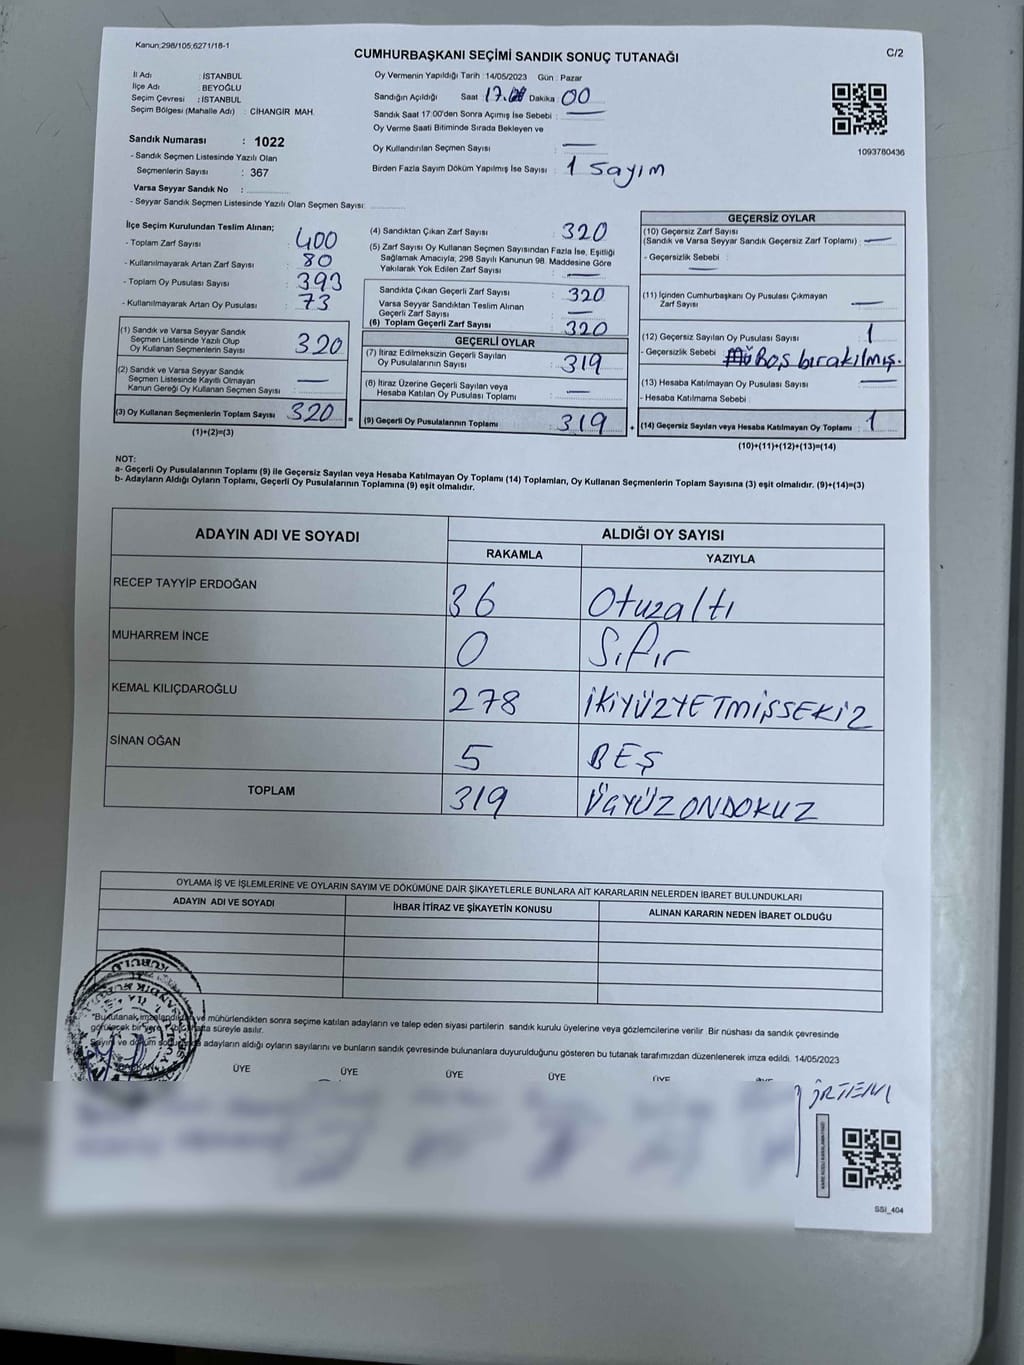 Kanun;298/105;6271/18-1
C/2
CUMHURBAŞKANI SEÇİMİ SANDIK SONUÇ TUTANAĞI
İl Adı : İSTANBUL
İlçe Adı : BEYOĞLU
Seçim Çevresi : İSTANBUL
Seçim Bölgesi (Mahalle Adı) : CİHANGİR MAH.
Sandık Numarası : 1022
- Sandık Seçmen Listesinde Yazılı Olan
Seçmenlerin Sayısı : 367
Varsa Seyyar Sandık No :
- Seyyar Sandık Seçmen Listesinde Yazılı Olan Seçmen Sayısı:
Oy Vermenin Yapıldığı Tarih : 14/05/2023 Gün : Pazar
Sandığın Açıldığı Saat 17. Dakika 00
Sandık Saat 17:00'den Sonra Açımış İse Sebebi : —
Oy Verme Saati Bitiminde Sırada Bekleyen ve
Oy Kullandırılan Seçmen Sayısı : —
Birden Fazla Sayım Döküm Yapılmış İse Sayısı : 1 sayım
1093760436
İlçe Seçim Kurulundan Teslim Alınan;
- Toplam Zarf Sayısı : 400
- Kullanılmayarak Artan Zarf Sayısı : 80
- Toplam Oy Pusulası Sayısı : 393
- Kullanılmayarak Artan Oy Pusulası : 73
(1) Sandık ve Varsa Seyyar Sandık
Seçmen Listesinde Yazılı Olup
Oy Kullanan Seçmenlerin Sayısı : 320
(2) Sandık ve Varsa Seyyar Sandık
Seçmen Listesinde Kayıtlı Olmayan
Kanun Gereği Oy Kullanan Seçmen Sayısı : —
(3) Oy Kullanan Seçmenlerin Toplam Sayısı : 320
(1)+(2)=(3)
(4) Sandıktan Çıkan Zarf Sayısı : 320
(5) Zarf Sayısı Oy Kullanan Seçmen Sayısından Fazla İse, Eşitliği
Sağlamak Amacıyla; 298 Sayılı Kanunun 98. Maddesine Göre
Yakılarak Yok Edilen Zarf Sayısı : —
Sandıkta Çıkan Geçerli Zarf Sayısı : 320
Varsa Seyyar Sandıktan Teslim Alınan
Geçerli Zarf Sayısı : —
(6) Toplam Geçerli Zarf Sayısı : 320
GEÇERLİ OYLAR
(7) İtiraz Edilmeksizin Geçerli Sayılan
Oy Pusulalarının Sayısı : 319
(8) İtiraz Üzerine Geçerli Sayılan veya
Hesaba Katılan Oy Pusulası Toplamı : —
(9) Geçerli Oy Pusulalarının Toplamı : 319
GEÇERSİZ OYLAR
(10) Geçersiz Zarf Sayısı
(Sandık ve Varsa Seyyar Sandık Geçersiz Zarf Toplamı) : —
- Geçersizlik Sebebi :
—
(11) İçinden Cumhurbaşkanı Oy Pusulası Çıkmayan
Zarf Sayısı : —
(12) Geçersiz Sayılan Oy Pusulası Sayısı : 1
- Geçersizlik Sebebi : Boş bırakılmış.
(13) Hesaba Katılmayan Oy Pusulası Sayısı : —
- Hesaba Katılmama Sebebi :
(14) Geçersiz Sayılan veya Hesaba Katılmayan Oy Toplamı : 1
(10)+(11)+(12)+(13)=(14)
NOT:
a- Geçerli Oy Pusulalarının Toplamı (9) ile Geçersiz Sayılan veya Hesaba Katılmayan Oy Toplamı (14) Toplamları, Oy Kullanan Seçmenlerin Toplam Sayısına (3) eşit olmalıdır. (9)+(14)=(3)
b- Adayların Aldığı Oyların Toplamı, Geçerli Oy Pusulalarının Toplamına (9) eşit olmalıdır.
ADAYIN ADI VE SOYADI ALDIĞI OY SAYISI
RAKAMLA YAZIYLA
RECEP TAYYİP ERDOĞAN 36 Otuzaltı
MUHARREM İNCE 0 Sıfır
KEMAL KILIÇDAROĞLU 278 İKİYÜZYETMİŞSEKİZ
SİNAN OĞAN 5 BEŞ
TOPLAM 319 ÜÇYÜZONDOKUZ
OYLAMA İŞ VE İŞLEMLERİNE VE OYLARIN SAYIM VE DÖKÜMÜNE DAİR ŞİKAYETLERLE BUNLARA AİT KARARLARIN NELERDEN İBARET BULUNDUKLARI
ADAYIN ADI VE SOYADI İHBAR İTİRAZ VE ŞİKAYETİN KONUSU ALINAN KARARIN NEDEN İBARET OLDUĞU
ve mühürlendikten sonra seçime katılan adayların ve talep eden siyasi partilerin sandık kurulu üyelerine veya gözlemcilerine verilir. Bir nüshası da sandık çevresinde
süreyle asılır.
adayların aldığı oyların sayılarını ve bunların sandık çevresinde bulunanlara duyurulduğunu gösteren bu tutanak tarafımızdan düzenlenerek imza edildi. 14/05/2023
ÜYE ÜYE ÜYE ÜYE
SSI_404